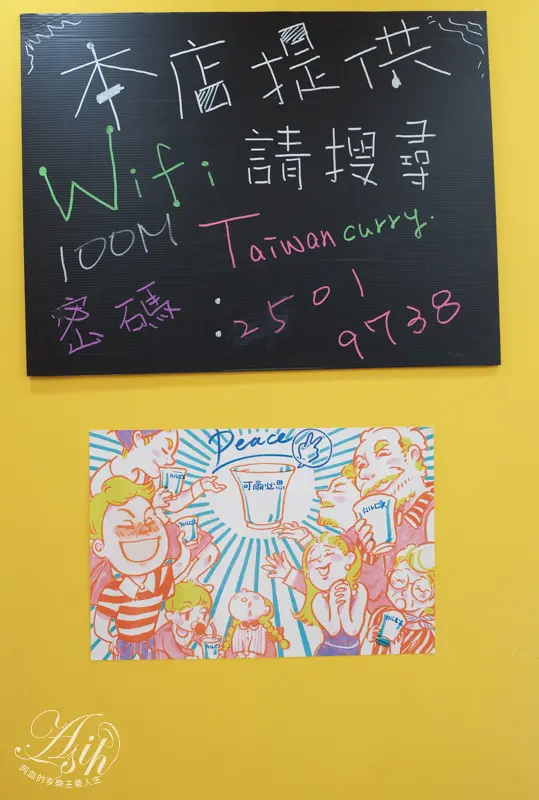 本店提供
Wifi 請搜尋
100M Taiwan curry.
密碼：2501
9738
Peace
可爾必思
カルピス
Asih
阿皿的安樂主義人生